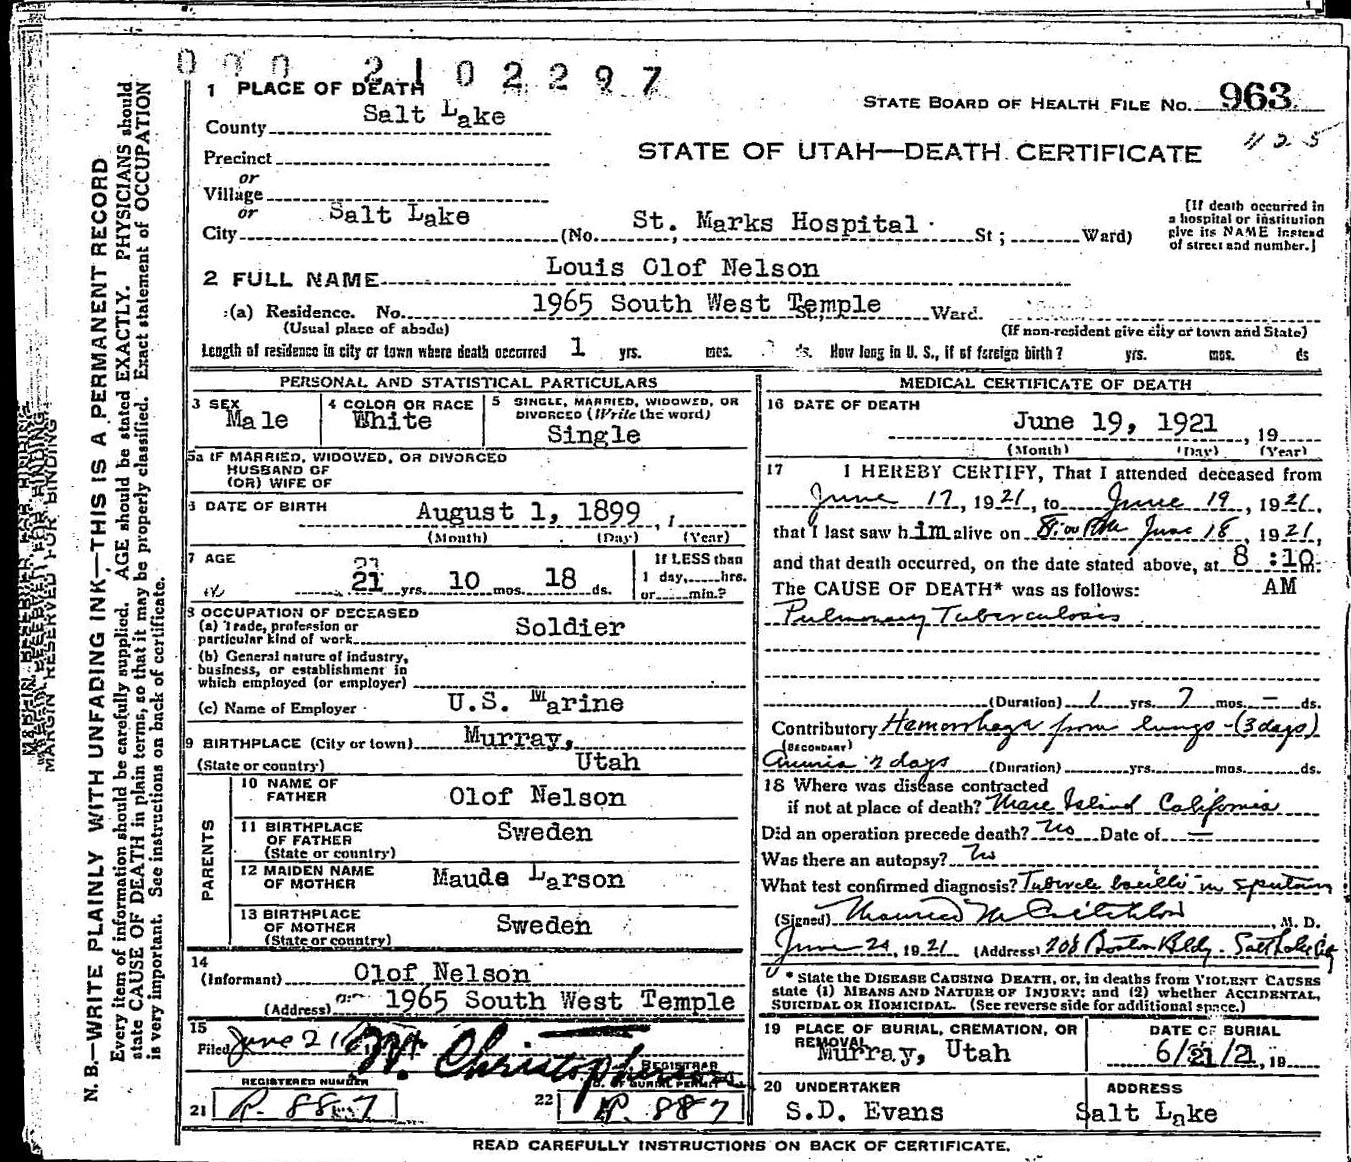 000 2102297
1 PLACE OF DEATH
STATE BOARD OF HEALTH FILE NO. 963
County Salt Lake
1125
Precinct
STATE OF UTAH—DEATH CERTIFICATE
or
Village
or
City Salt Lake (No. St. Marks Hospital St; Ward)
[If death occurred in
a hospital or institution
give its NAME instead
of street and number.]
2 FULL NAME Louis Olof Nelson
(a) Residence. No. 1965 South West Temple St, Ward.
(Usual place of abode) (If non-resident give city or town and State)
Length of residence in city or town where death occurred 1 yrs. mos. ds. How long in U. S., if of foreign birth? yrs. mos. ds
PERSONAL AND STATISTICAL PARTICULARS
3 SEX
Male
4 COLOR OR RACE
White
5 SINGLE, MARRIED, WIDOWED, OR
DIVORCED (Write the word)
Single
5a IF MARRIED, WIDOWED, OR DIVORCED
HUSBAND OF
(OR) WIFE OF
6 DATE OF BIRTH
August 1, 1899, 1
(Month) (Day) (Year)
7 AGE
21 yrs. 10 mos. 18 ds.
If LESS than
1 day, hrs.
or min.?
8 OCCUPATION OF DECEASED
(a) Trade, profession or
particular kind of work Soldier
(b) General nature of industry,
business, or establishment in
which employed (or employer)
(c) Name of Employer U.S. Marine
9 BIRTHPLACE (City or town) Murray,
(State or country) Utah
PARENTS
10 NAME OF
FATHER Olof Nelson
11 BIRTHPLACE
OF FATHER Sweden
(State or country)
12 MAIDEN NAME
OF MOTHER Maude Larson
13 BIRTHPLACE
OF MOTHER Sweden
(State or country)
14
(Informant) Olof Nelson
(Address) 1965 South West Temple
15
Filed June 21
W. Christopherson
REGISTRAR
REGISTERED NUMBER
OF BURIAL PERMIT
21 R. 887
22 P. 887
MEDICAL CERTIFICATE OF DEATH
16 DATE OF DEATH
June 19, 1921, 19
(Month) (Day) (Year)
17 I HEREBY CERTIFY, That I attended deceased from
June 17, 1921, to June 19, 1921,
that I last saw him alive on 8:00 PM June 18, 1921,
and that death occurred, on the date stated above, at 8:10 m.
The CAUSE OF DEATH* was as follows: AM
Pulmonary Tuberculosis
(Duration) 1 yrs. 7 mos. — ds.
Contributory Hemorrhage from lungs - (3 days)
(SECONDARY)
2 days (Duration) yrs. mos. ds.
18 Where was disease contracted
if not at place of death? Mare Island California
Did an operation precede death? No Date of —
Was there an autopsy? No
What test confirmed diagnosis? Tubercle bacilli in sputum
(Signed) M. D.
June 20, 1921 (Address) 208 Boston Bldg. Salt Lake City
* State the DISEASE CAUSING DEATH, or, in deaths from VIOLENT CAUSES
state (1) MEANS AND NATURE OF INJURY; and (2) whether ACCIDENTAL,
SUICIDAL OR HOMICIDAL. (See reverse side for additional space.)
19 PLACE OF BURIAL, CREMATION, OR
REMOVAL
Murray, Utah
DATE OF BURIAL
6/21/21, 19
20 UNDERTAKER
S.D. Evans
ADDRESS
Salt Lake
READ CAREFULLY INSTRUCTIONS ON BACK OF CERTIFICATE.
MARGIN RESERVED FOR BINDING
N. B.—WRITE PLAINLY WITH UNFADING INK—THIS IS A PERMANENT RECORD
Every item of information should be carefully supplied. AGE should be stated EXACTLY. PHYSICIANS should
state CAUSE OF DEATH in plain terms, so that it may be properly classified. Exact statement of OCCUPATION
is very important. See instructions on back of certificate.